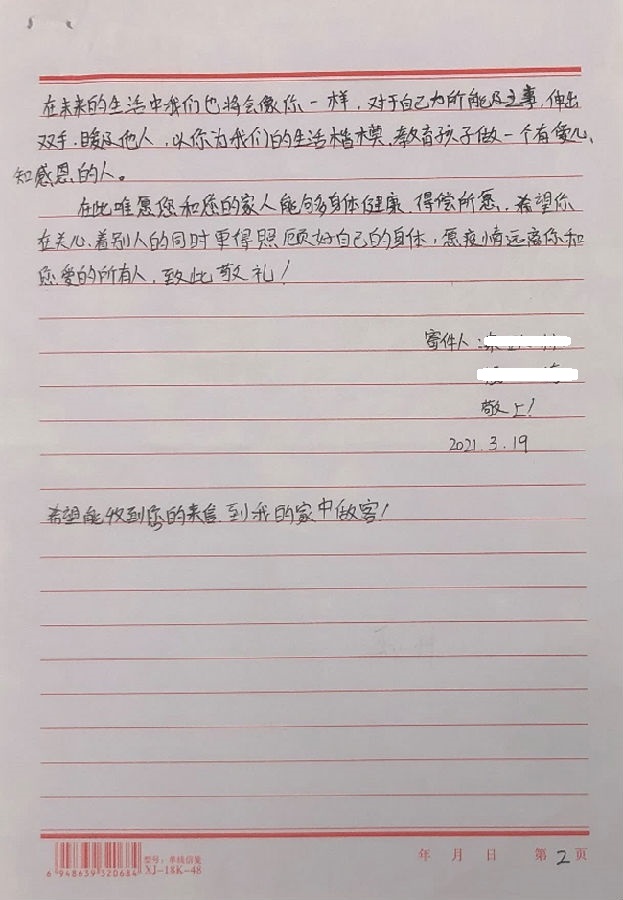 在未来的生活中我们也将会像你一样，对于自己力所能及之事，伸出
双手，暖及他人，以你为我们的生活楷模，教育孩子做一个有爱心、
知感恩的人。
在此唯愿您和您的家人能够身体健康，得偿所愿，希望你
在关心着别人的同时更得照顾好自己的身体，愿疫情远离你和
您爱的所有人，致此敬礼！
寄件人：
敬上！
2021.3.19
希望能收到您的来信，到我的家中做客！
6 948639 320684
型号：单线信笺
XJ-18K-48
年 月 日 第 2 页